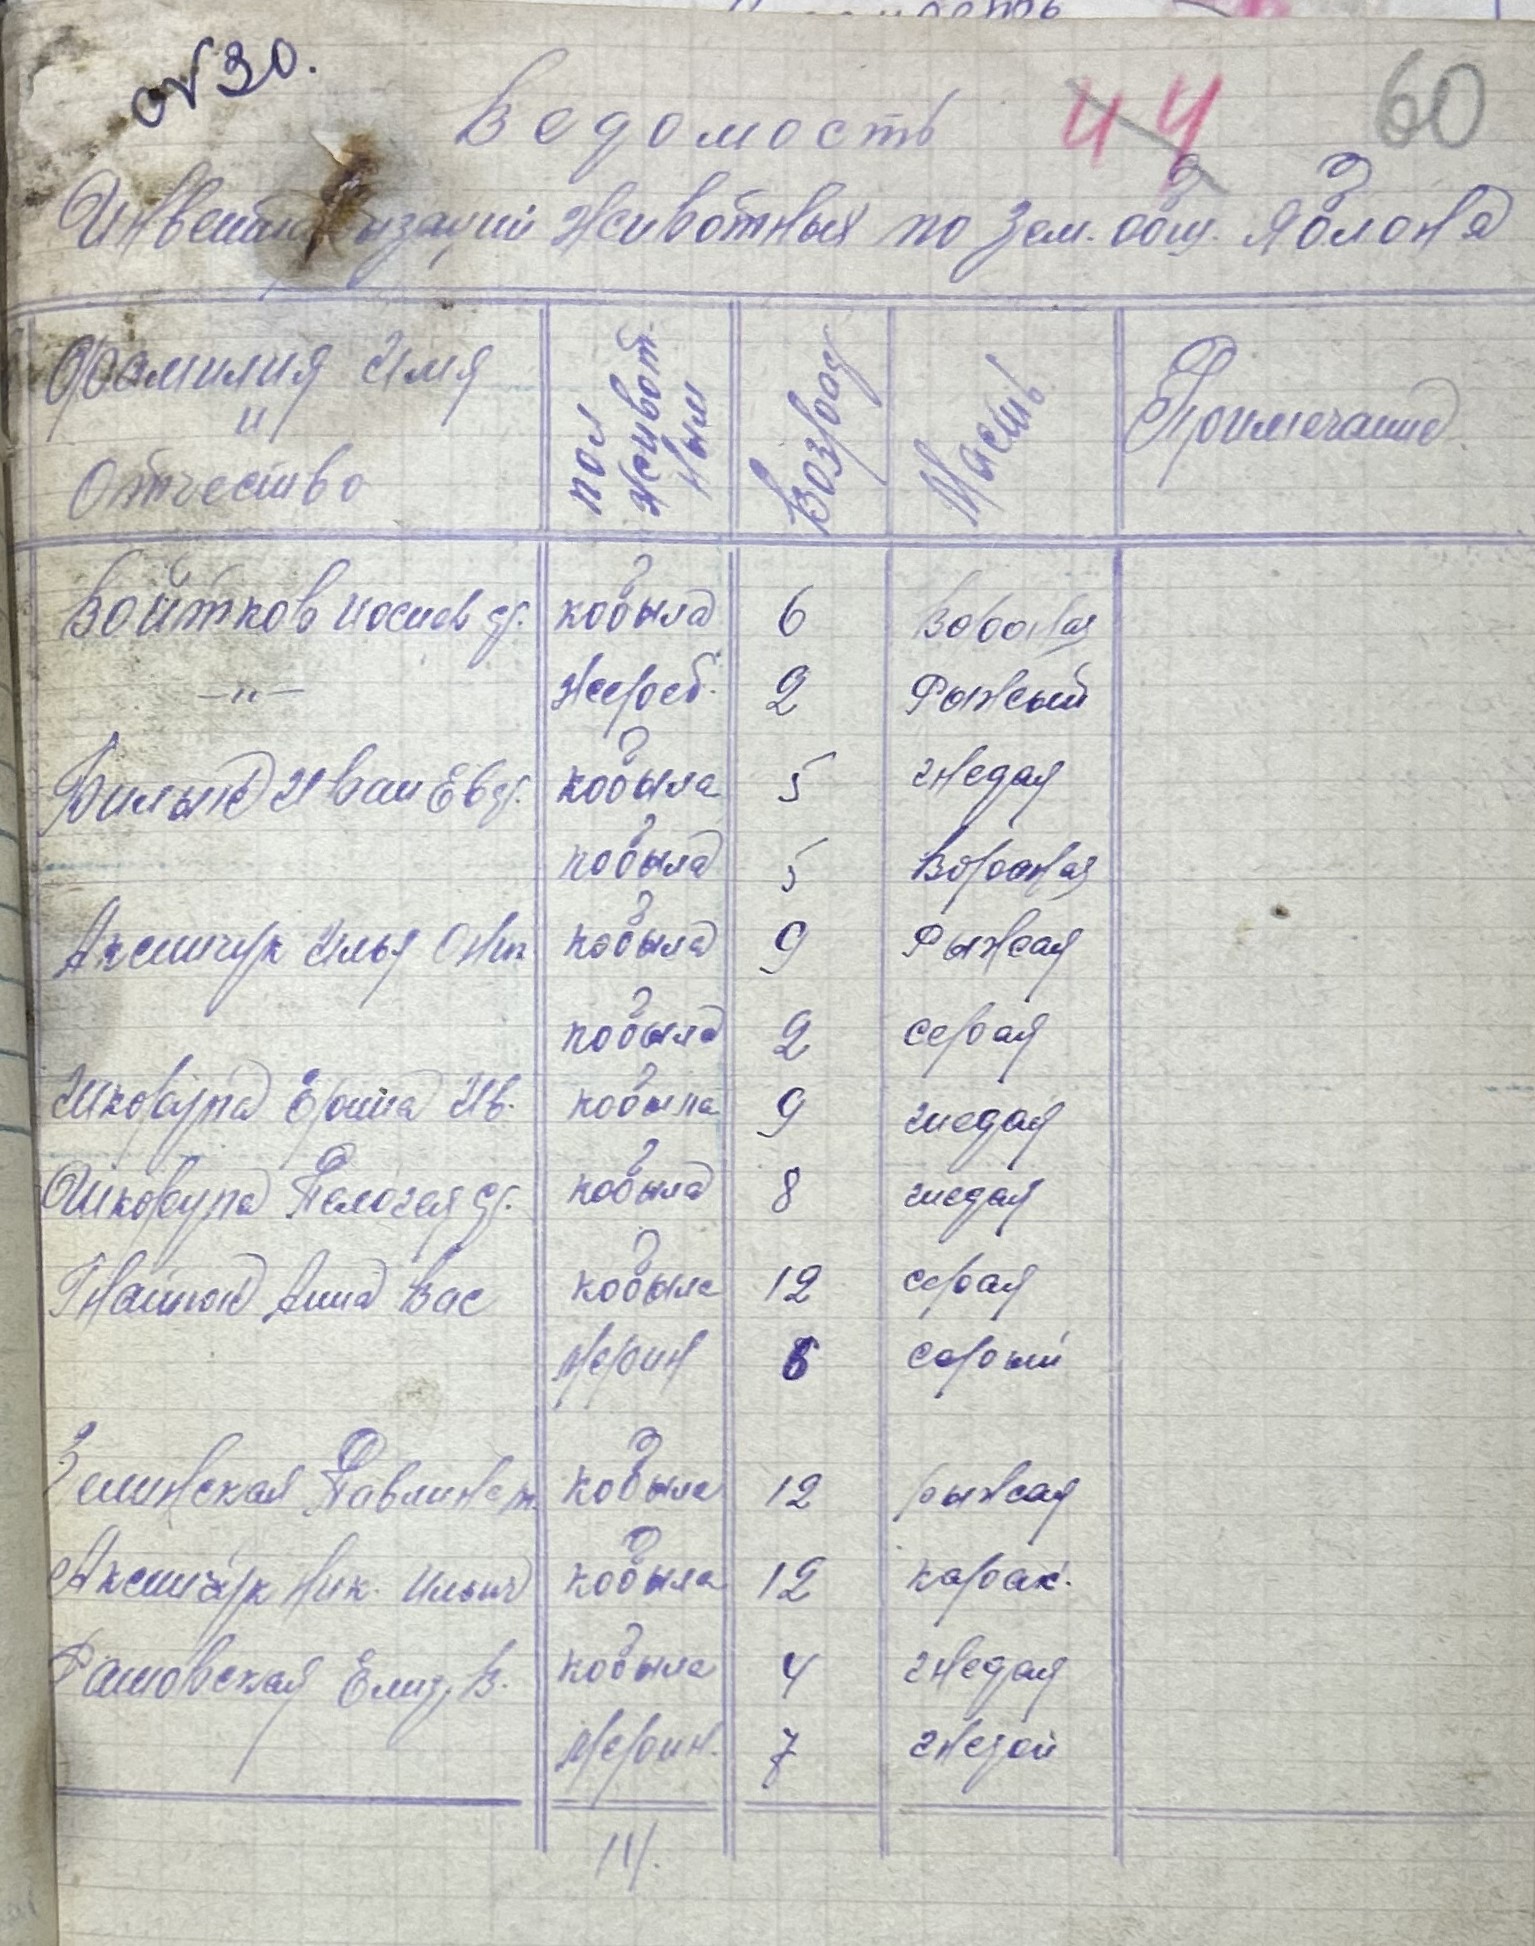 № 30.
44 60
Ведомость
Инвентаризации животных по Зем. общ. Яблона
Фамилия Имя и Отчество пол животным Возраст Масть Примечание
Войтков Иосиев гр. кобыла 6 Вороная
—"— жереб. 2 Рыжый
Билые Иван Евгр. кобыла 5 гнедая
кобыла 5 Вороная
Аксинчук Илья Онп. кобыла 9 Рыжая
кобыла 2 серая
Шкорупа Ив. кобыла 9 гнедая
Шкорупа Пелогея гр. кобыла 8 гнедая
Гнатюк Анна Вас кобыла 12 серая
мерин 8 серый
Зелинская кобыла 12 рыжая
Аксинчук Ник. Ильич кобыла 12 карак.
Рашовская Елиз. В. кобыла 4 гнедая
мерин. 7 гнедой
14.